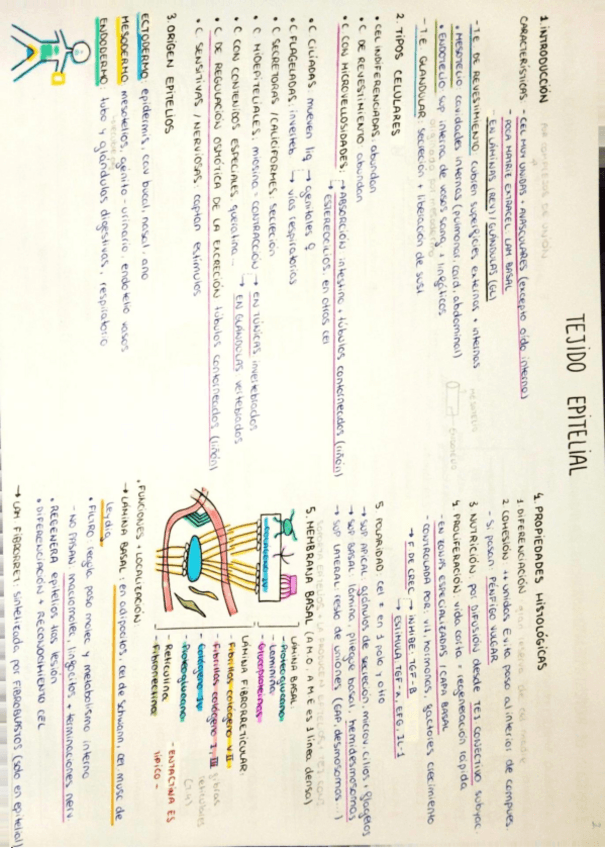 2
TEJIDO EPITELIAL
1. INTRODUCCIÓN
CARACTERÍSTICAS - CEL MUY UNIDAS + AVASCULARES (excepto oído interno)
- POCA MATRIZ EXTRACEL: LAM BASAL
- EN LÁMINAS (REV) / GLÁNDULAS (GL)
- T.E. DE REVESTIMIENTO: cubren superficies externas + internas
• MESOTELIO: cavidades internas (pulmonar, card, abdominal)
• ENDOTELIO: sup interna de vasos sang. + linfáticos
- T.E. GLANDULAR: secreción + liberación de sust
2. TIPOS CELULARES
• CEL INDIFERENCIADAS: abundan
• C DE REVESTIMIENTO: abundan
• C CON MICROVELLOSIDADES: → ABSORCIÓN: intestino + túbulos contorneados (riñón)
→ ESTEREOCILIOS: en otras cel
• C CILIADAS: mueven liq → genitales ♀
• C FLAGELADAS: inverteb → vías respiratorias
• C SECRETORAS / CALICIFORMES: secreción
• C MIOEPITELIALES: miosina = CONTRACCIÓN → EN TÚNICAS invertebrados
→ EN GLÁNDULAS vertebrados
• C CON CONTENIDOS ESPECIALES: queratina...
• C DE REGULACIÓN OSMÓTICA DE LA EXCRECIÓN: túbulos contorneados (riñón)
• C SENSITIVAS / NERVIOSAS: captan estímulos
3. ORIGEN EPITELIOS
ECTODERMO: epidermis, cav bucal, nasal, ano
MESODERMO: mesotelios, génito-urinario, endotelio vasos
ENDODERMO: tubo y glándulas digestivas, respiratorio
4. PROPIEDADES HISTOLÓGICAS
1. DIFERENCIACIÓN
2. COHESIÓN: ++ unidos. Evita paso al interior de compues.
- Si pasan: PÉNFIGO VULGAR
3. NUTRICIÓN: por DIFUSIÓN desde TEJ CONECTIVO subyac.
4. PROLIFERACIÓN: vida corta = regeneración rápida
- EN ZONAS ESPECIALIZADAS / CAPA BASAL
- CONTROLADA POR: vit, hormonas, factores crecimiento
→ F DE CREC → INHIBE: TGF-B
→ ESTIMULA: TGF-A, EFG, IL-1
5. POLARIDAD: cel ≠ en 1 polo y otro
→ SUP APICAL: gránulos de secreción, microv, cilios + flagelos
→ SUP BASAL: lámina, pliegue basal, hemidesmosomas
→ SUP LATERAL: resto de uniones (GAP, desmosomas...)
5. MEMBRANA BASAL (A M.O. A M.E es 1 línea densa)
LÁMINA BASAL
- Proteoglucanos
- Laminina
- Glucoproteínas
LÁMINA FIBRORRETICULAR
- Fibrillas colágeno VII
- Fibrillas colágeno I, III
- Colágeno IV
- Proteoglucanos
- Reticulina
- Fibronectina
- ENTACTINA ES TÍPICO -
• FUNCIONES + LOCALIZACIÓN
→ LÁMINA BASAL: en adipocitos, cel de Schwann, cel musc de Leydig
• FILTRO: regula paso molec y metabolismo interno
- NO PASAN: macromolec, linfocitos + terminaciones nerv.
• REGENERA epitelios tras lesión
• DIFERENCIACIÓN + RECONOCIMIENTO CEL
→ LÁM FIBRORRET: sintetizada por FIBROBLASTOS (solo en epitelial)